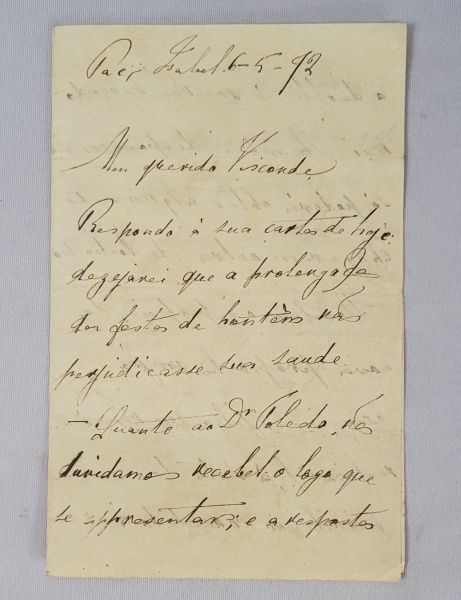 Paço Isabel 6-5-72
Meu querido Visconde,
Respondo á sua carta de hoje.
dezejarei que a prolongação
das festas de hontem não
perjudicasse sua saude
— Quanto ao Dr Toledo, não
duvidamos recebel-o logo que
se appresentar; e a resposta